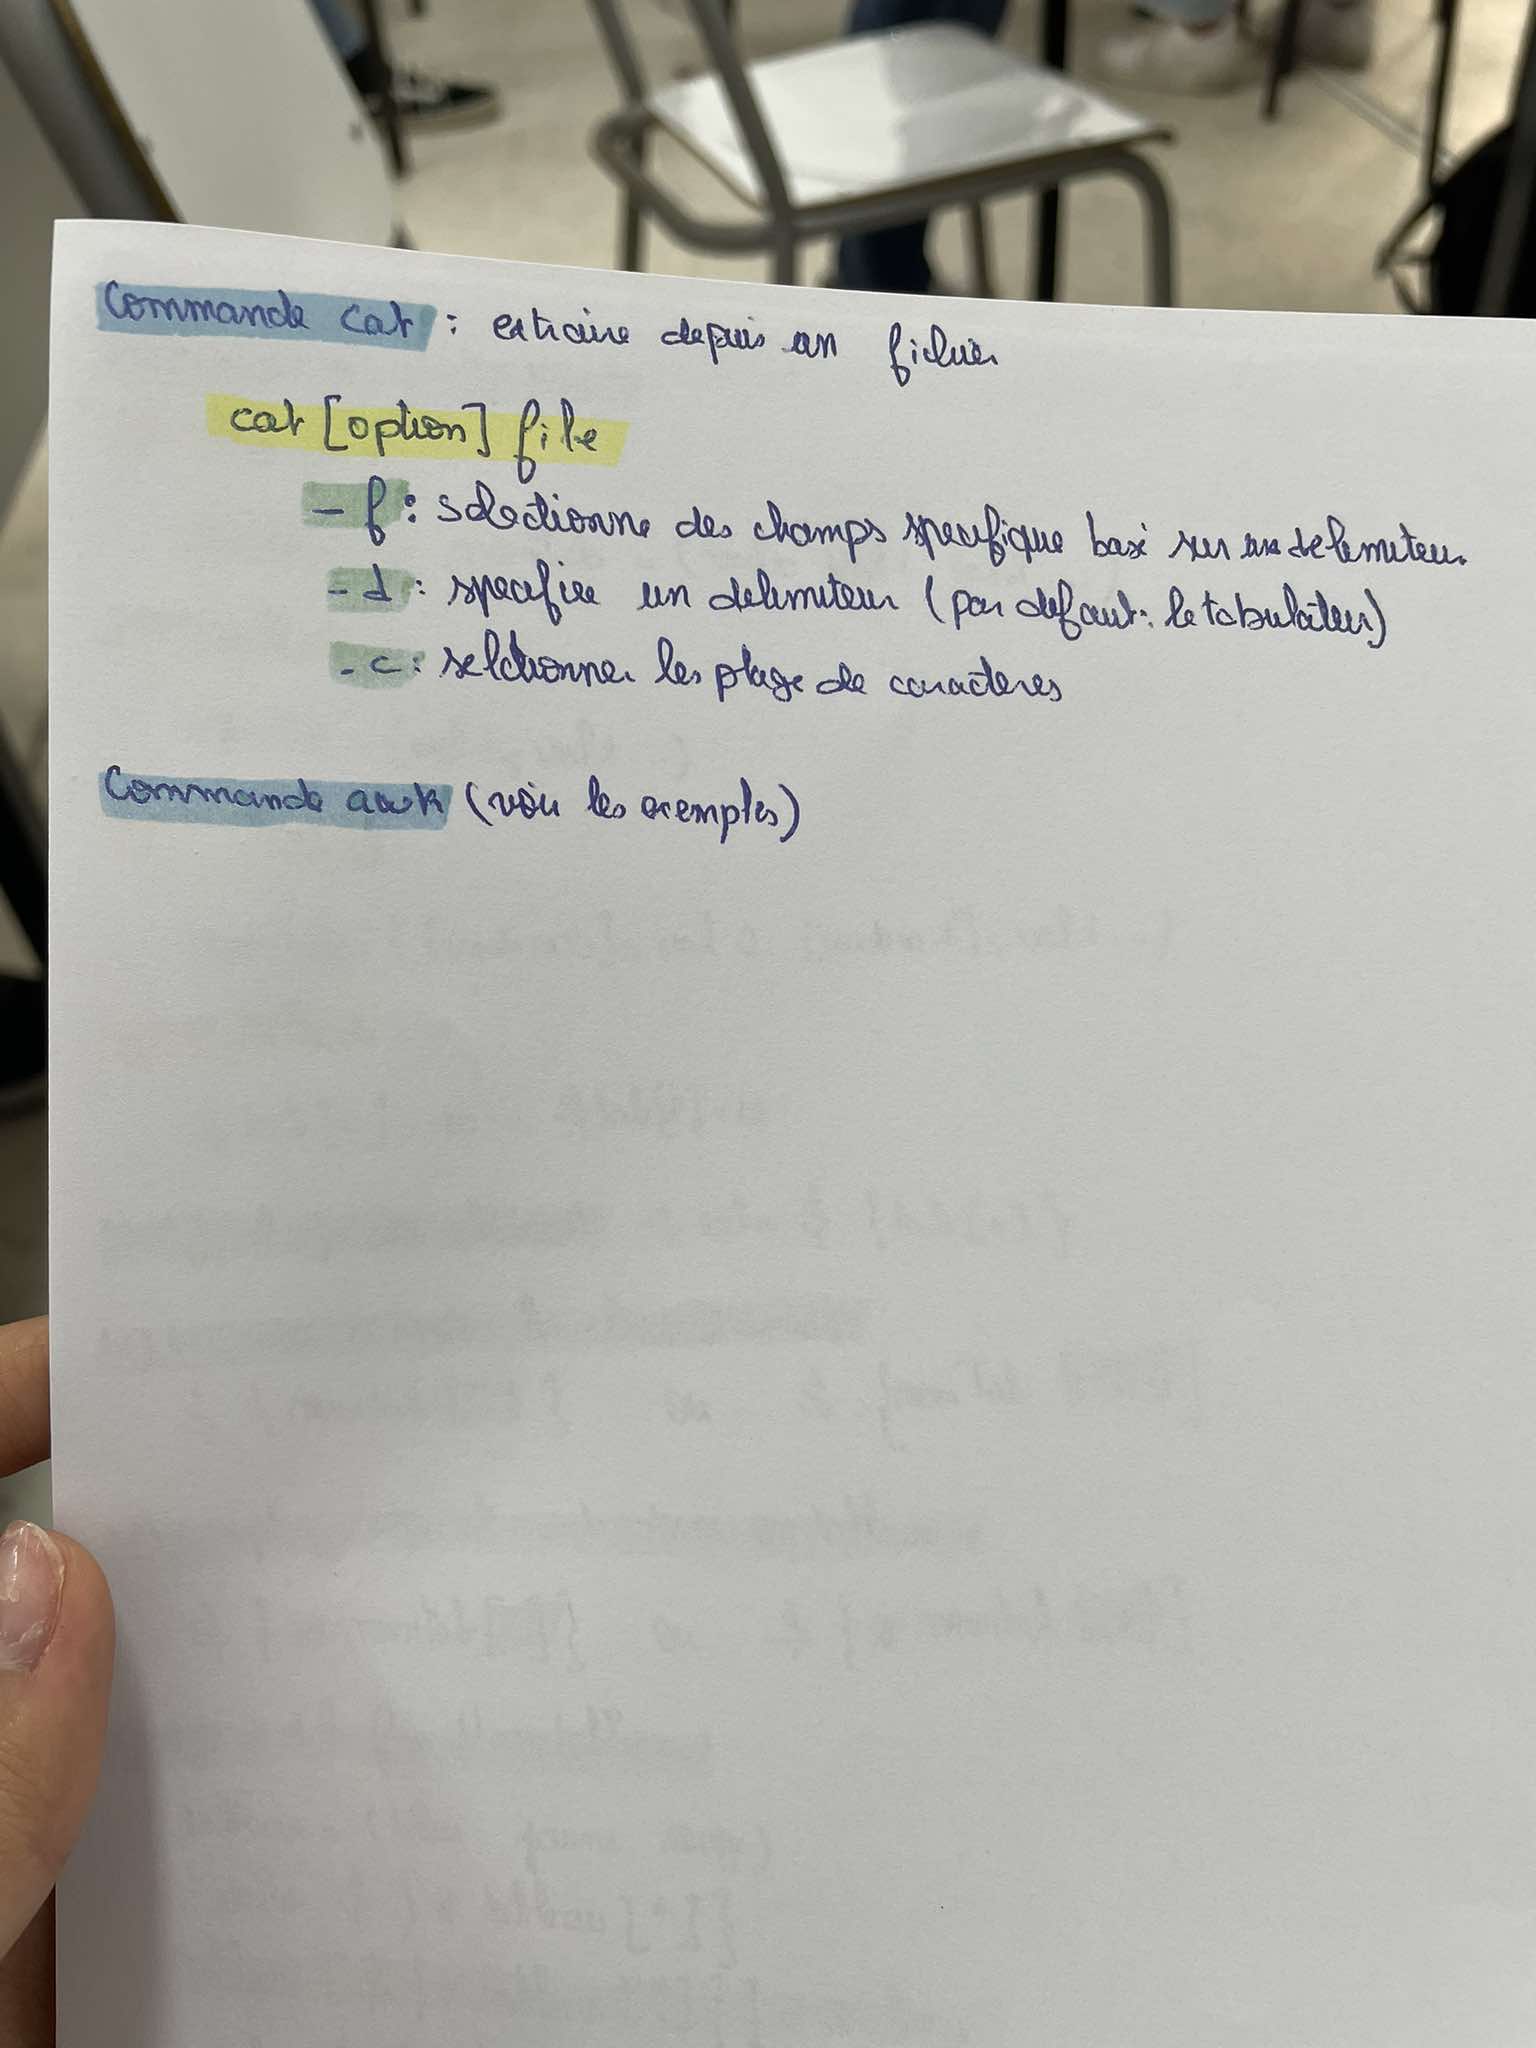 Commande cat : extraire depuis un fichier
cat [option] file
- f : selectionne des champs specifique basé sur un delemiteur
- d : specifiee un delemiteur (par defaut : le tabulateur)
- c : selctionner les plage de caracteres
Commande awk (voir les exemples)